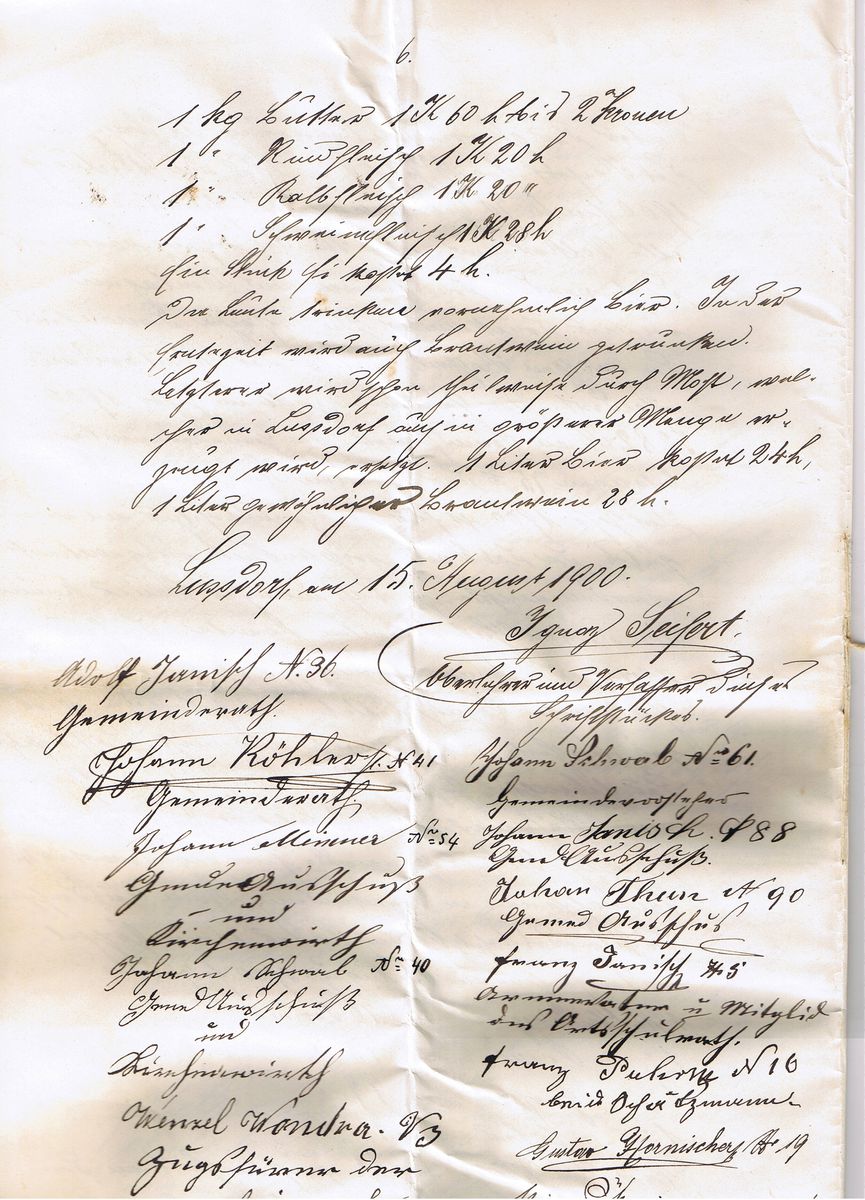 6.
1 kg Butter 1 K 60 h bis 2 Kronen
1 " Rindfleisch 1 K 20 h
1 " Kalbfleisch 1 K 20 "
1 " Schweinefleisch 1 K 28 h
Ein Stück Ei kostet 4 h.
Die Leute trinken vornehmlich Bier. In der
Erntezeit wird auch Brantwein getrunken.
Letzterer wird schon theilweise durch Most, wel-
cher in Lussdorf auch in größerer Menge er-
zeugt wird, ersetzt. 1 Liter Bier kostet 24 h,
1 Liter gewöhnlicher Brantwein 28 h.
Lussdorf, am 15. August 1900.
Ignaz Seifert.
Oberlehrer und Verfasser dieses
Schriftstückes.
Adolf Janisch N. 36.
Gemeinderath.
Johann Köhler N 41
Gemeinderath.
Johann No 54
GmdeAusschuß
und
Kirchenwirth
Johann Schwab No 40
GmdAusschuß
und
Kirchenwirth
Wenzel Wondra. V3
Zugsfürer der
Johann Schwab No 61.
Gemeindevorsteher
Johann Janisch. 88
GmdAusschuß.
Johan Thun N 90
Gemed Ausschus
Franz Janisch 5
Armenvater u Mitglid
des Ortsschulrath.
Franz N 16
Gustav Hornischer No 19